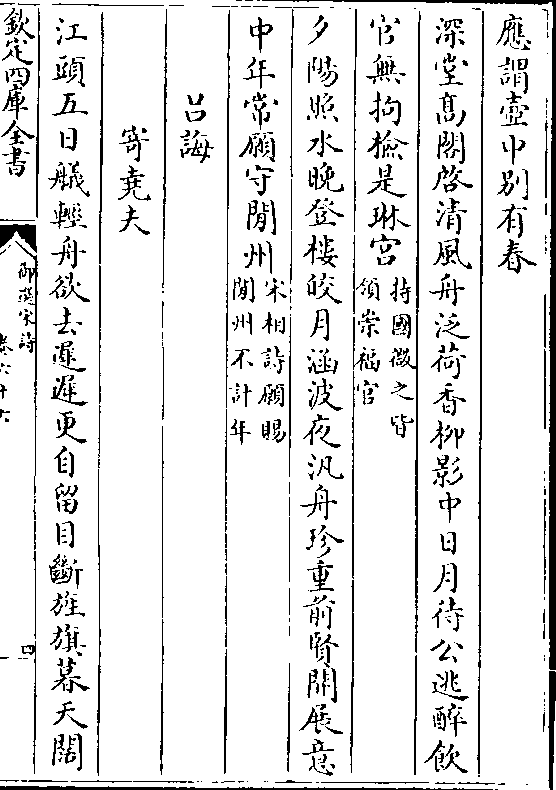 應謂壺中别有春
深堂髙閣啓清風舟泛荷香柳影中日月待公逃醉飲
官無拘檢是琳宫持國微之皆
領崇福官
夕陽照水晩登樓皎月涵波夜汎舟珍重前賢開展意
中年常願守閒州宋相詩願賜
閒州不計年
吕誨
寄堯夫
江頭五日艤輕舟欲去遲遲更自留目斷旌旗暮天闊
欽定四庫全書
御選宋詩
卷六十六
四